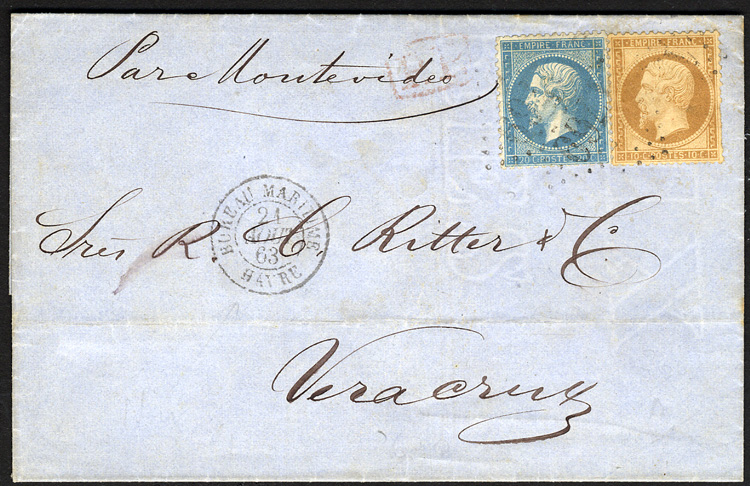 Par Montevideo
EMPIRE FRANC
20 C POSTES
EMPIRE FRANC
10 C POSTES 10 C
BUREAU MARITIME
21
AOUT
63
HAVRE
Srés R. C. Ritter & C
Veracruz